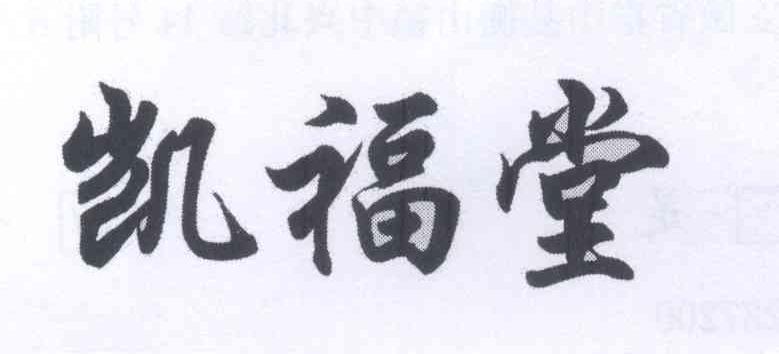 凯福堂